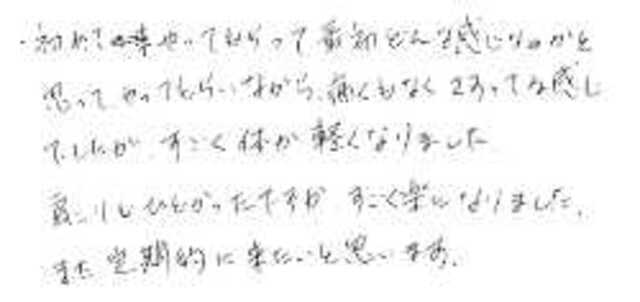 ・初めて来やってもらって最初どんな感じなのかと
思ってやってもらいながら、痛くもなく こうってな感じ
でしたが すごく体が軽くなりました
肩こりもひどかったですが すごく楽になりました。
また定期的に来たいと思います。